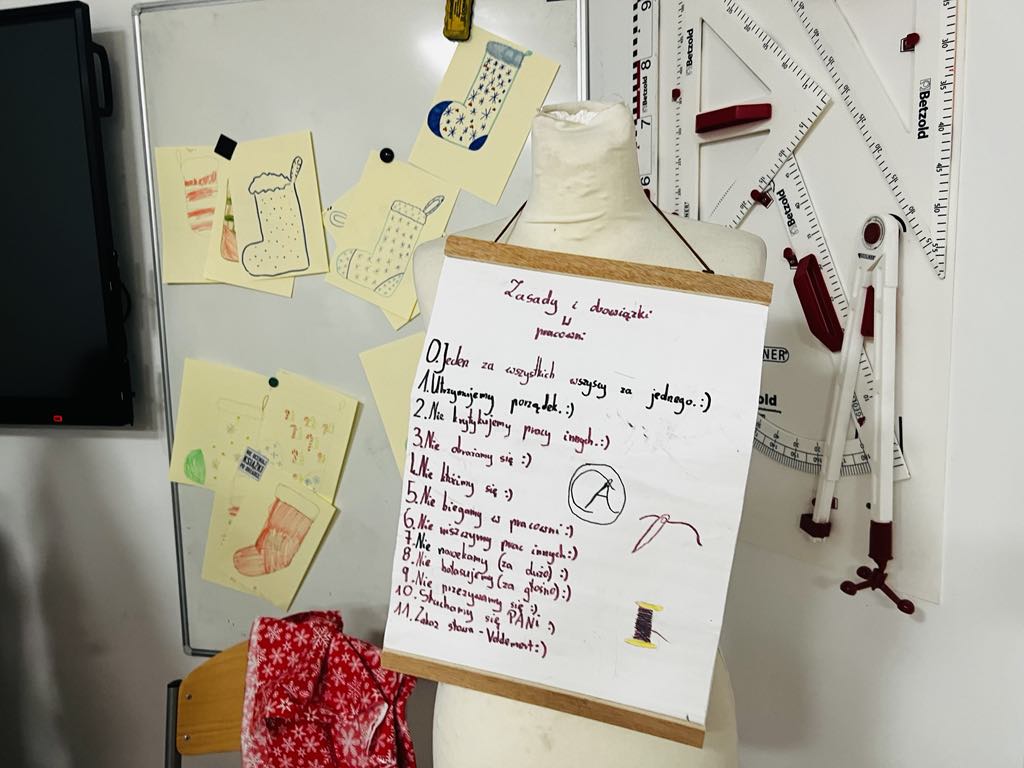 Zasady i obowiązki
w
pracowni
0. Jeden za wszystkich wszyscy za jednego. :)
1. Utrzymujemy porządek. :)
2. Nie krytykujemy pracy innych. :)
3. Nie obrażamy się :)
4. Nie kłócimy się :)
5. Nie biegamy w pracowni :)
6. Nie niszczymy prac innych :)
7. Nie narzekamy (za dużo) :)
8. Nie hałasujemy (za głośno) :)
9. Nie przezywamy się :)
10. Słuchamy się PANi :)
11. Zakaz słowa - Voldemort :)
A
Betzold
Betzold
Betzold
Betzold